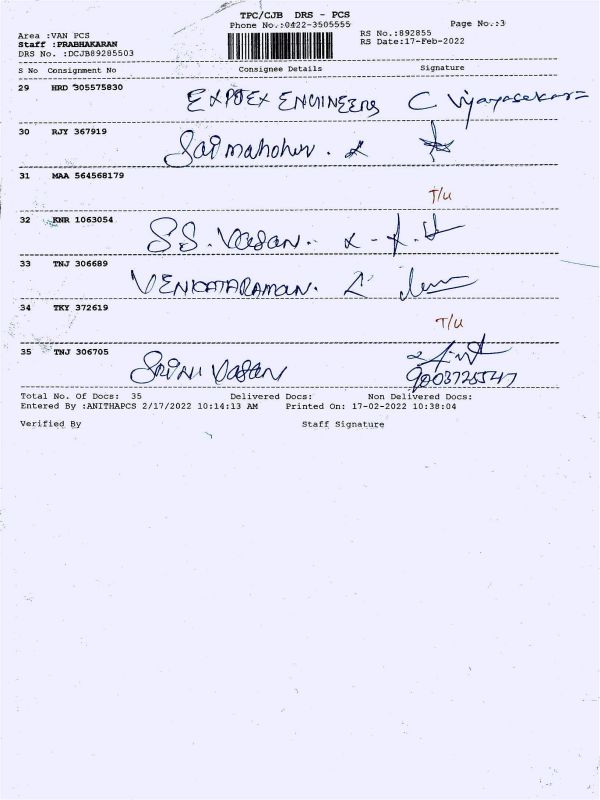 TPC/CJB DRS - PCS
Phone No.:0422-3505555 Page No.:3
Area :VAN PCS RS No.:892855
Staff :PRABHAKARAN RS Date:17-Feb-2022
DRS No. :DCJB89285503
S No Consignment No Consignee Details Signature
29 HRD 305575830 ENGINEERS C Vijayasekar
30 RJY 367919
31 MAA 564568179 T/U
32 KNR 1063054 S.S. Vasan.
33 TNJ 306689 VENKATARAMAN.
34 TKY 372619 T/U
35 TNJ 306705 Srini Vasan
Total No. Of Docs: 35 Delivered Docs: Non Delivered Docs:
Entered By :ANITHAPCS 2/17/2022 10:14:13 AM Printed On: 17-02-2022 10:38:04
Verified By Staff Signature